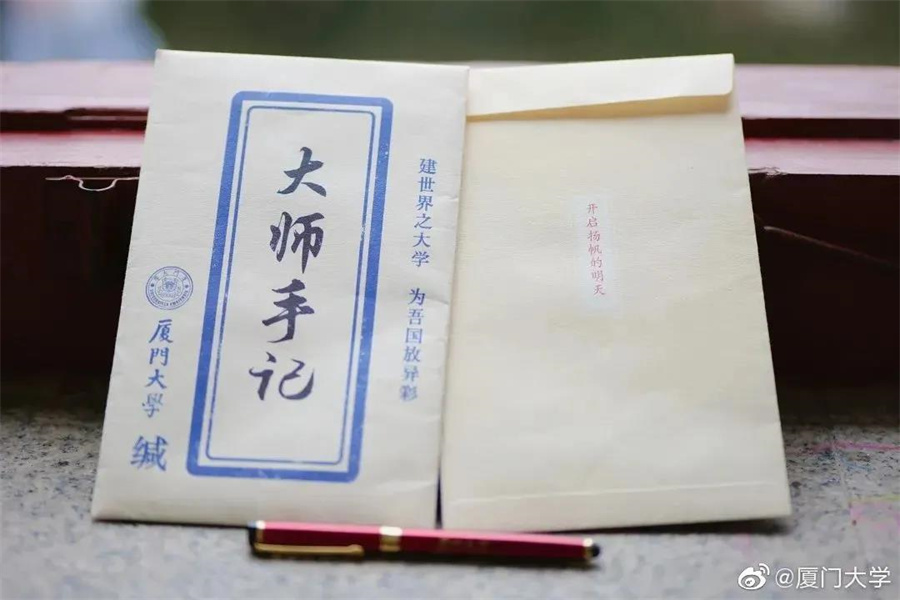 建世界之大学 为吾国放异彩
大师手记
厦門大學 缄
开启扬帆的明天
@厦门大学